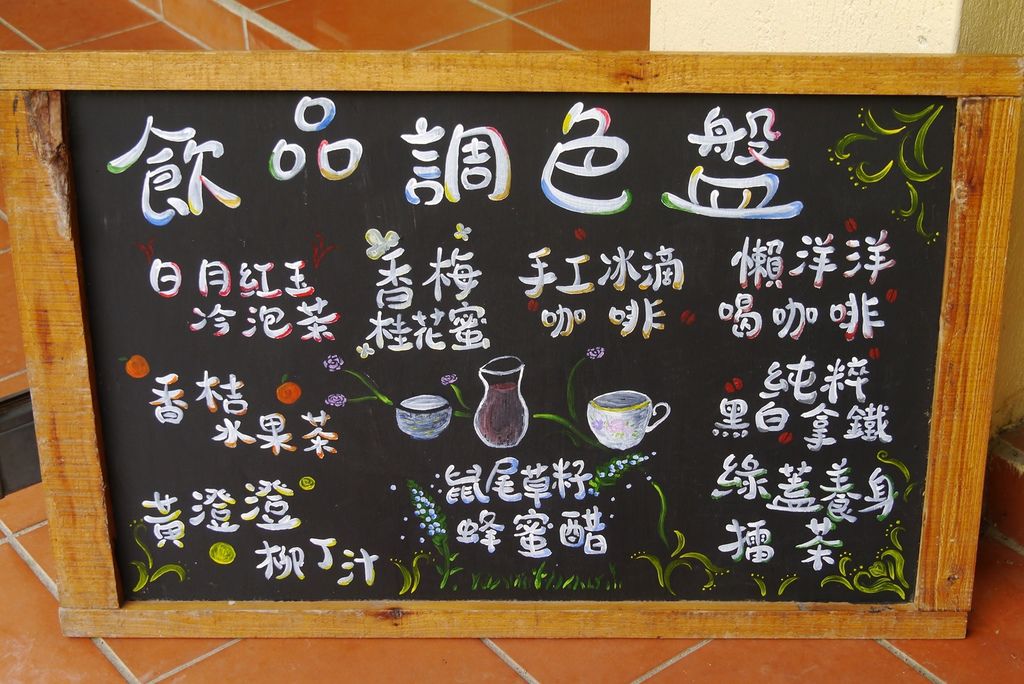 飲品調色盤
日月紅玉
冷泡茶
香梅
桂花蜜
手工冰滴
咖啡
懶洋洋
喝咖啡
香桔
水果茶
純粹
黑白拿鐵
黃澄澄
柳丁汁
鼠尾草籽
蜂蜜醋
綠蓋養身
擂茶